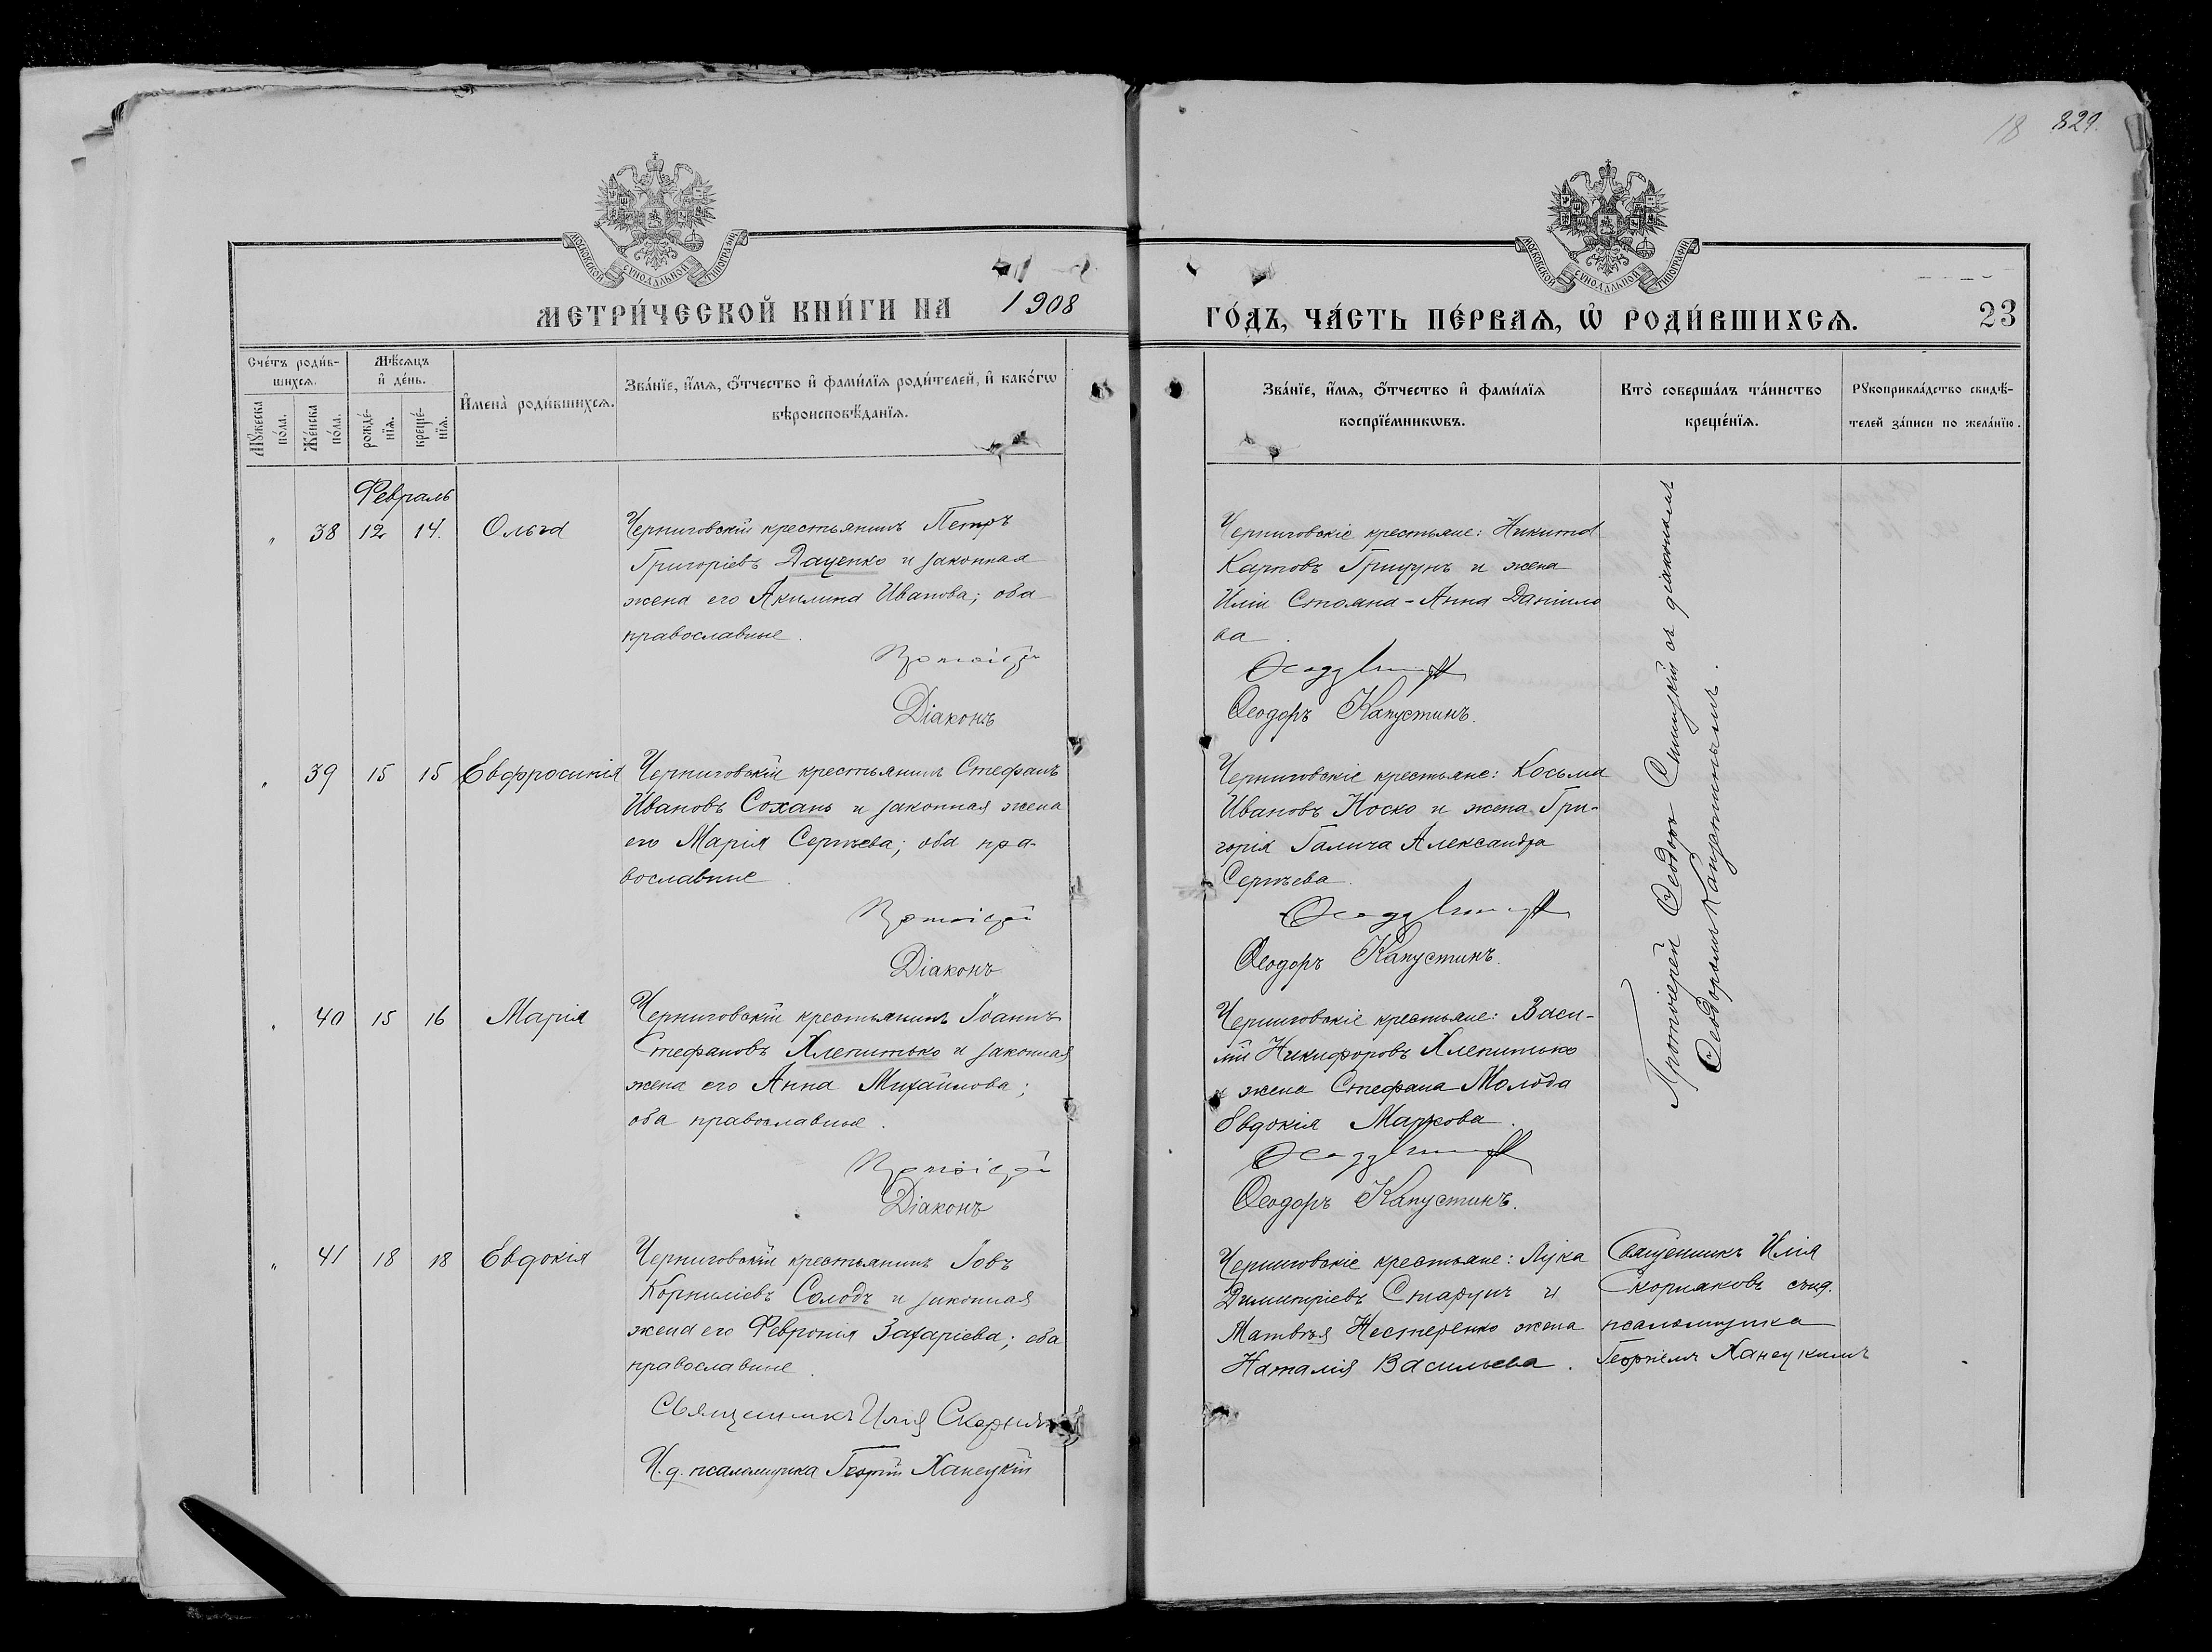 18 829.
МОСКОВСКОЙ СѴНОДАЛЬНОЙ ТИПОГРАФИИ
МОСКОВСКОЙ СѴНОДАЛЬНОЙ ТИПОГРАФИИ
МЕТРИ́ЧЕСКОЙ КНИ́ГИ НА 1908
ГО́ДЪ, ЧА́СТЬ ПЕ́РВАѦ, Ѡ҆ РОДИ́ВШИХСѦ. 23
Сче́тъ роди́в-
шихсѧ.
Мꙋ́жеска
по́ла.
Же́нска
по́ла.
Мѣ́сѧцъ
и҆ де́нь.
рожде́-
нїѧ.
креще́-
нїѧ.
И҆мена̀ роди́вшихсѧ.
Зва́нїе, и҆́мѧ, ѻ҆́тчество и҆ фами́лїѧ роди́телей, и҆ како́гѡ
вѣроисповѣ́данїѧ.
Зва́нїе, и҆́мѧ, ѻ҆́тчество и҆ фами́лїѧ
воспрїе́мникѡвъ.
Кто̀ соверша́лъ та́инство
креще́нїѧ.
Рꙋкоприкла́дство свидѣ́-
телей за́писи по жела́нїю.
Февраль
" 38 12 14. Ольга
Черниговскій крестьянинъ Петръ
Григоріевъ Даценко и законная
жена его Акилина Иванова; оба
православные.
Протоіерей
Діаконъ
Черниговскіе крестьяне: Никита
Карповъ Грицунъ и жена
Иліи Стояна - Анна Даніило
ва.
Ѳеодоръ Капустинъ.
" 39 15 15 Евфросинія
Черниговскій крестьянинъ Стефанъ
Ивановъ Сохань и законная жена
его Марія Сергѣева; оба пра-
вославные.
Протоіерей
Діаконъ
Черниговскіе крестьяне: Косьма
Ивановъ Носко и жена Гри-
горія Галича Александра
Сергѣева.
Ѳеодоръ Капустинъ.
" 40 15 16 Марія
Черниговскій крестьянинъ Іоаннъ
Стефановъ Хлепитько и законная
жена его Анна Михайлова;
оба православные.
Протоіерей
Діаконъ
Черниговскіе крестьяне: Васи-
лій Никифоровъ Хлепитько
и жена Стефана Молода
Евдокія Маркова.
Ѳеодоръ Капустинъ.
Протоіерей Ѳеодоръ съ діакономъ
Ѳеодоромъ Капустинымъ.
" 41 18 18 Евдокія
Черниговскій крестьянинъ Іовъ
Корниліевъ Солодъ и законная
жена его Февронія Захаріева; оба
православные.
Священникъ Илія Скорняковъ
И. д. псаломщика Георгій Ханецкій
Черниговскіе крестьяне: Лука
Димитріевъ Старунъ и
Матвѣя Нестеренко жена
Наталія Васильева.
Священникъ Илія
Скорняковъ съ и.д.
псаломщика
Георгіемъ Ханецкимъ